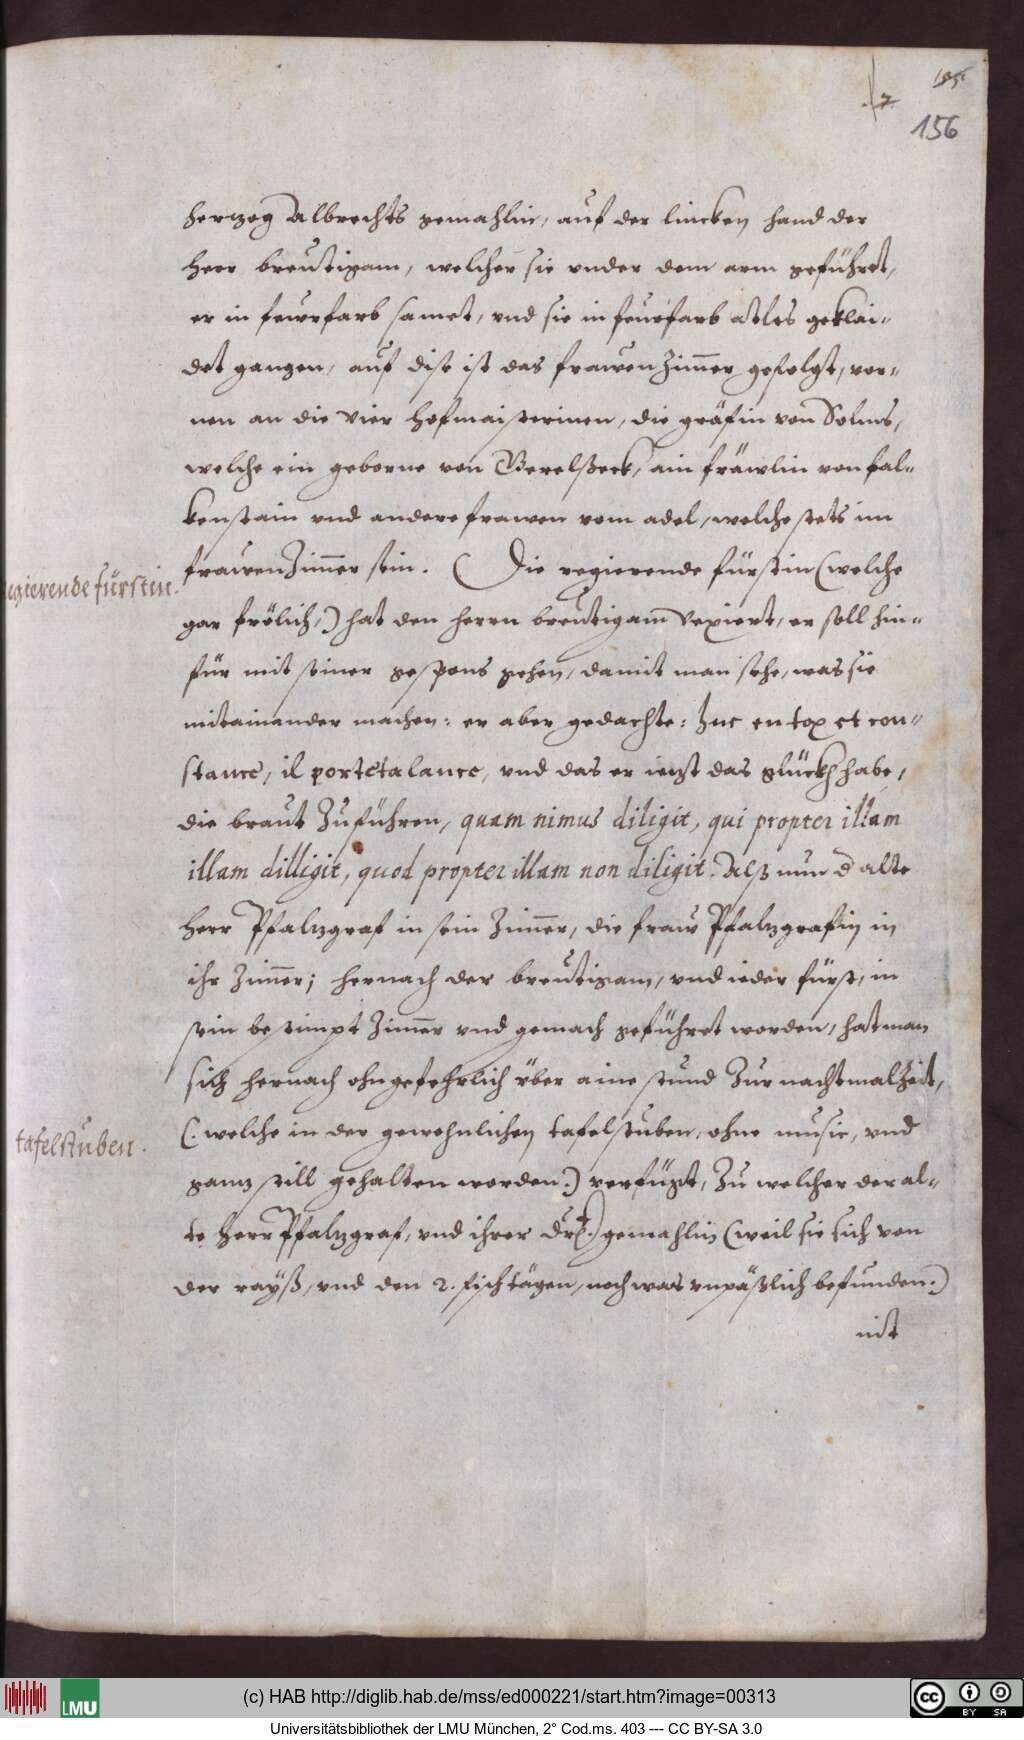 7. 195
156
hertzog Albrechts gemahlin, auf der lincken hand der
herr breutigam, welcher sie vnder dem arm geführet,
er in feurfarb samet, vnd sie in feurfarb atles geklai-
det gangen, auf dise ist das frawen Zimer gefolgt, vor-
nen an die vier hofmaisterinen, die gräfin von Solms,
welche ein geborne von ain fräwlin von fal-
kenstain vnd andere frawen vom adel, welche stets im
frawen Zimer sein. (Die regierende fürstin (welche
egierende fürstin.
gar frölich,) hat den herrn breutigam vexiert, er soll hin-
für mit seiner gespons gehen, damit man sehe, was sie
mitainander machen: er aber gedachte: Inc en tox et con-
stance, il portetalance, vnd das er ietzt das glückh habe,
die braut Zuführen, quam nimus diligit, qui propter illam
illam dilligit, quod propter illam non diligit. Alß nun d alte
herr Pfaltzgraf in sein Zimer, die fraw Pfaltzgrafin in
ihr Zimer; hernach der breutigam, vnd ieder fürst, in
sein bestimpt Zimer vnd gemach geführet worden, hat man
sich hernach ohngefehrlich über aine stund Zur nachtmalZeit,
tafelstuben.
(. welche in der gewohnlichen tafelstuben, ohne music, vnd
gantz still gehalten worden.) verfügt, Zu welcher der al-
te herr Pfaltzgraf, vnd ihrer gemahlin (weil sie sich von
der rayß, vnd den 2. fischtägen, noch was vnpäßlich befunden.)
nit
(c) HAB http://diglib.hab.de/mss/ed000221/start.htm?image=00313
LMU
cc BY SA
Universitätsbibliothek der LMU München, 2° Cod.ms. 403 --- CC BY-SA 3.0